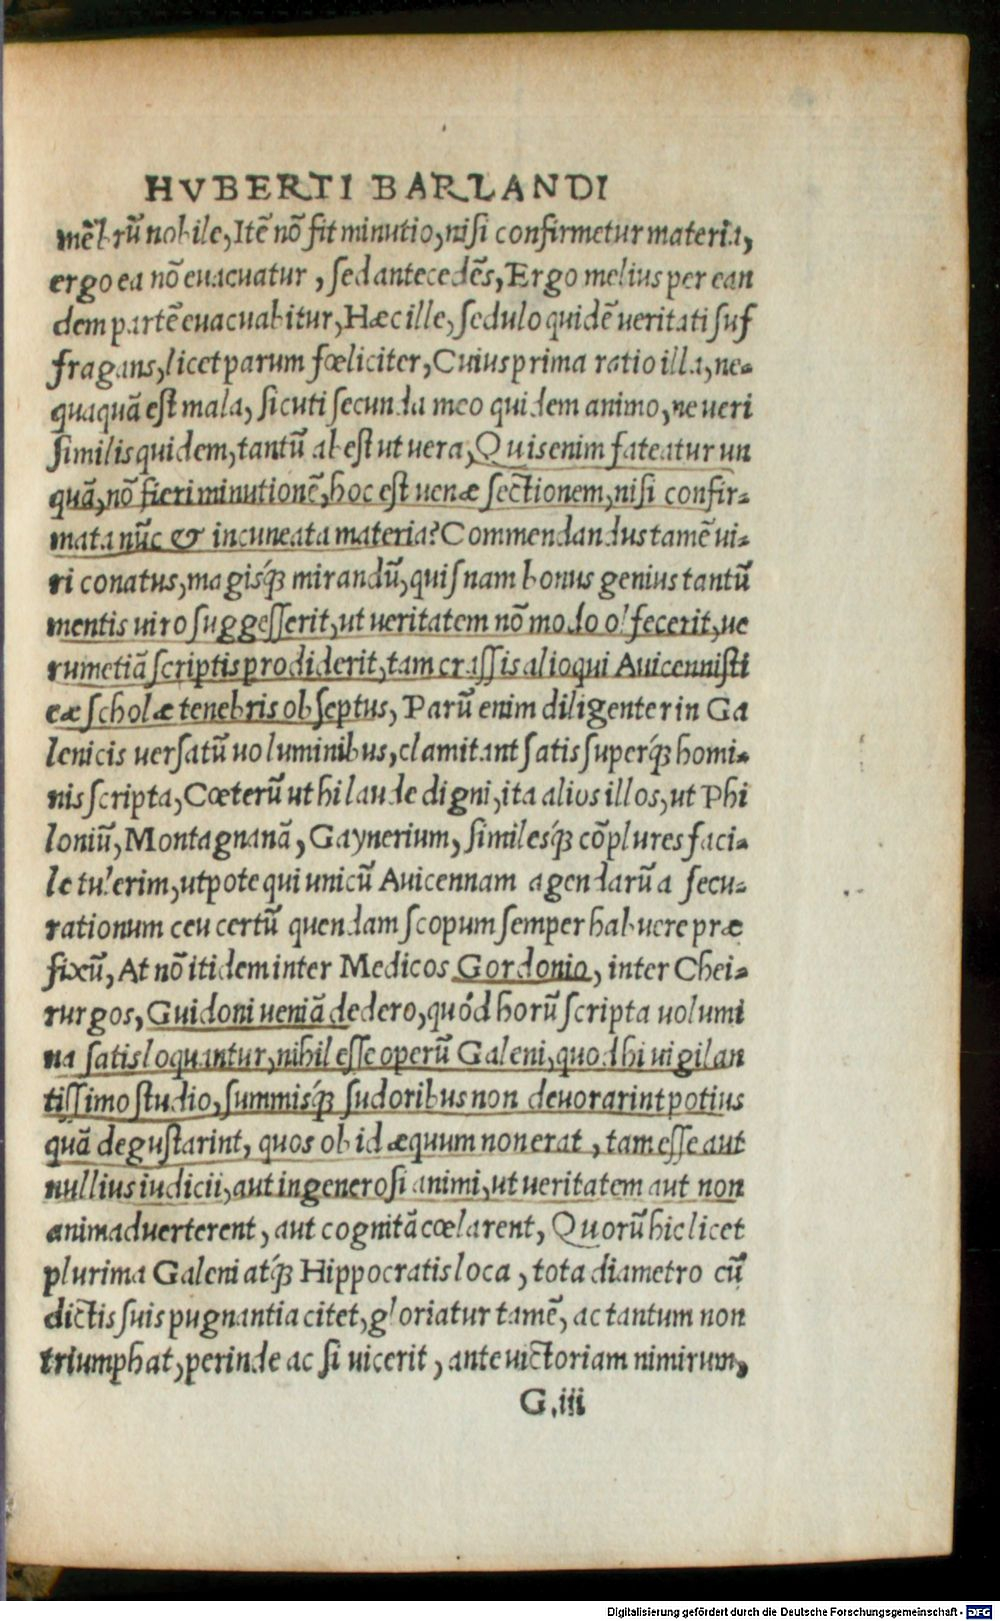 HVBERTI BARLANDI
mēbrū nobile, Itē nō fit minutio, nisi confirmetur materia,
ergo ea nō euacuatur, sed antecedēs, Ergo melius per ean
dem partē euacuabitur, Hæc ille, sedulo quidē veritati suf
fragans, licet parum fœliciter, Cuius prima ratio illa, ne-
quaquā est mala, sicuti secunda meo quidem animo, ne veri
similis quidem, tantū abest ut vera, Quis enim fateatur un
quā, nō fieri minutionē, hoc est uenæ sectionem, nisi confir-
mata nūc & incuneata materia? Commendandus tamē ui-
ri conatus, magisq́; mirandū, quisnam bonus genius tantū
mentis uiro suggesserit, ut ueritatem nō modo olfecerit, ue
rumetiā scriptis prodiderit, tam crassis alioqui Auicennisti
cæ scholæ tenebris obseptus, Parū enim diligenter in Ga
lenicis versatū uoluminibus, clamitant satis superq́; homi-
nis scripta, Cœterū ut hi laude digni, ita alios illos, ut Phi
loniū, Montagnanā, Gaynerium, similesq́; cōplures faci-
le tulerim, utpote qui unicū Auicennam agendarū a se cu-
rationum ceu certū quendam scopum semper habuere præ
fixū, At nō itidem inter Medicos Gordonio, inter Chei-
rurgos, Guidoni ueniā dedero, quód horū scripta uolumi
na satis loquantur, nihil esse operū Galeni, quod hi uigilan
tissimo studio, summisq́; sudoribus non deuorarint potius
quā degustarint, quos ob id æquum non erat, tam esse aut
nullius iudicii, aut ingenerosi animi, ut ueritatem aut non
animaduerterent, aut cognitā cœlarent, Quorū hic licet
plurima Galeni atq́; Hippocratis loca, tota diametro cū
dictis suis pugnantia citet, gloriatur tamē, ac tantum non
triumphat, perinde ac si uicerit, ante uictoriam nimirum,
G.iii
Digitalisierung gefördert durch die Deutsche Forschungsgemeinschaft - DFG